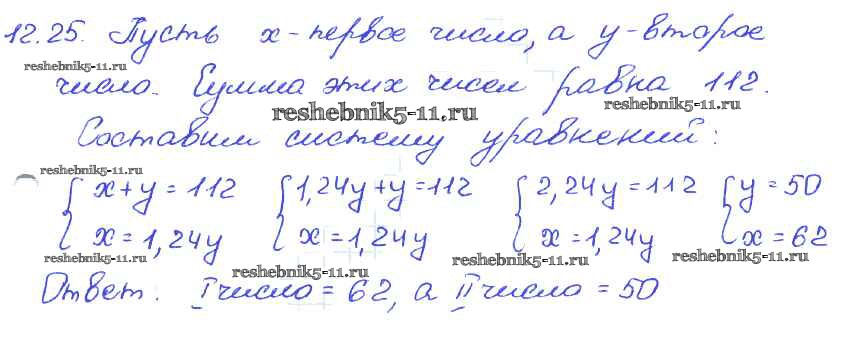 12.25. Пусть x - первое число, а y - второе
reshebnik5-11.ru
число. Сумма этих чисел равна 112.
reshebnik5-11.ru
reshebnik5-11.ru
Составим систему уравнений:
reshebnik5-11.ru
{ x + y = 112 { 1,24y + y = 112 { 2,24y = 112 { y = 50
x = 1,24y x = 1,24y x = 1,24y x = 62
reshebnik5-11.ru reshebnik5-11.ru reshebnik5-11.ru reshebnik5-11.ru
Ответ: I число = 62, а II число = 50